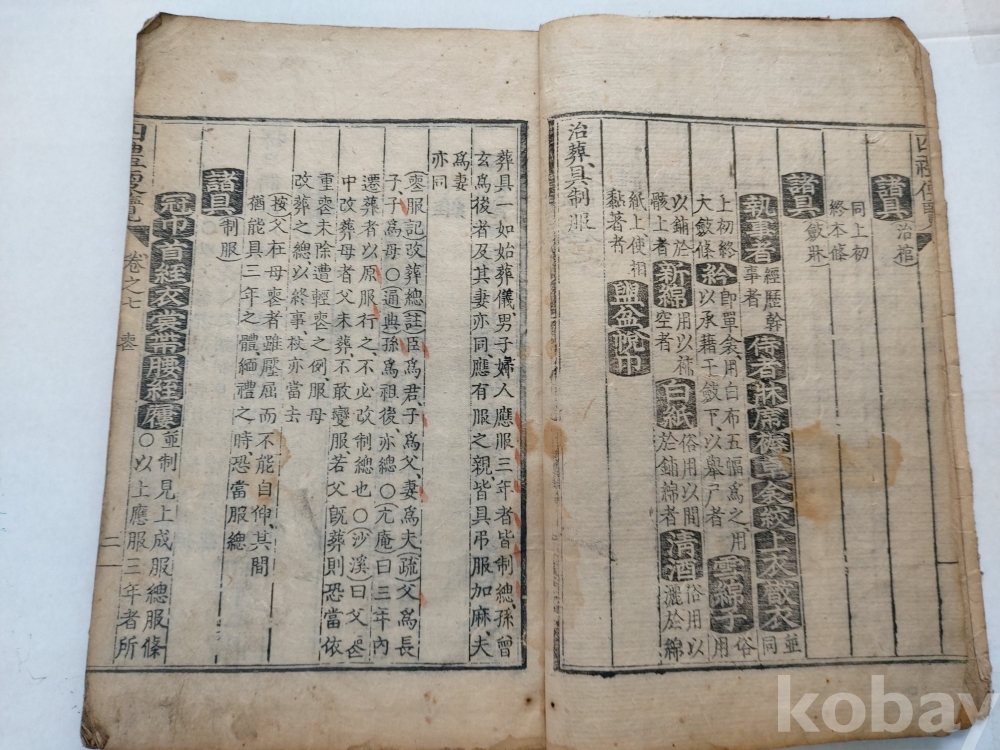 諸具 治棺
同上初
終本條
諸具 斂牀
執事者 經歷幹
事者 侍者牀席褥草衾絞上衣散衣 並同
上初終
大斂條 紟 卽單衾用白布五幅爲之用
以承藉于斂下以舉尸者 雪綿子 俗用
以鋪於
骸上者 新綿 用以補
空者 白紙 俗用以間
於鋪綿者 淸酒 俗用以
灑於綿
紙上使相
黏著者 盥盆帨巾
治葬具制服
葬具一如始葬儀男子婦人應服三年者皆制緦孫曾
玄爲後者及其妻亦同應有服之親皆具吊服加麻夫
爲妻
亦同
喪服記改葬緦註臣爲君子爲父妻爲夫疏父爲長
子子爲母〇通典孫爲祖後亦緦〇尤庵曰三年內
遷葬者以原服行之不必改制緦也〇沙溪曰父喪
中改葬母者父未葬不敢變服若父旣葬則恐當依
重喪未除遭輕喪之例服母
改葬之緦以終事杖亦當去
按父在母喪者雖壓屈而不能自伸其間
猶能具三年之體緬禮之時恐當服緦
諸具 制服
冠巾首絰衣裳帶腰絰屨 並制見上成服緦服條
〇以上應服三年者所
四禮便覽 卷之七 喪 二
kobay